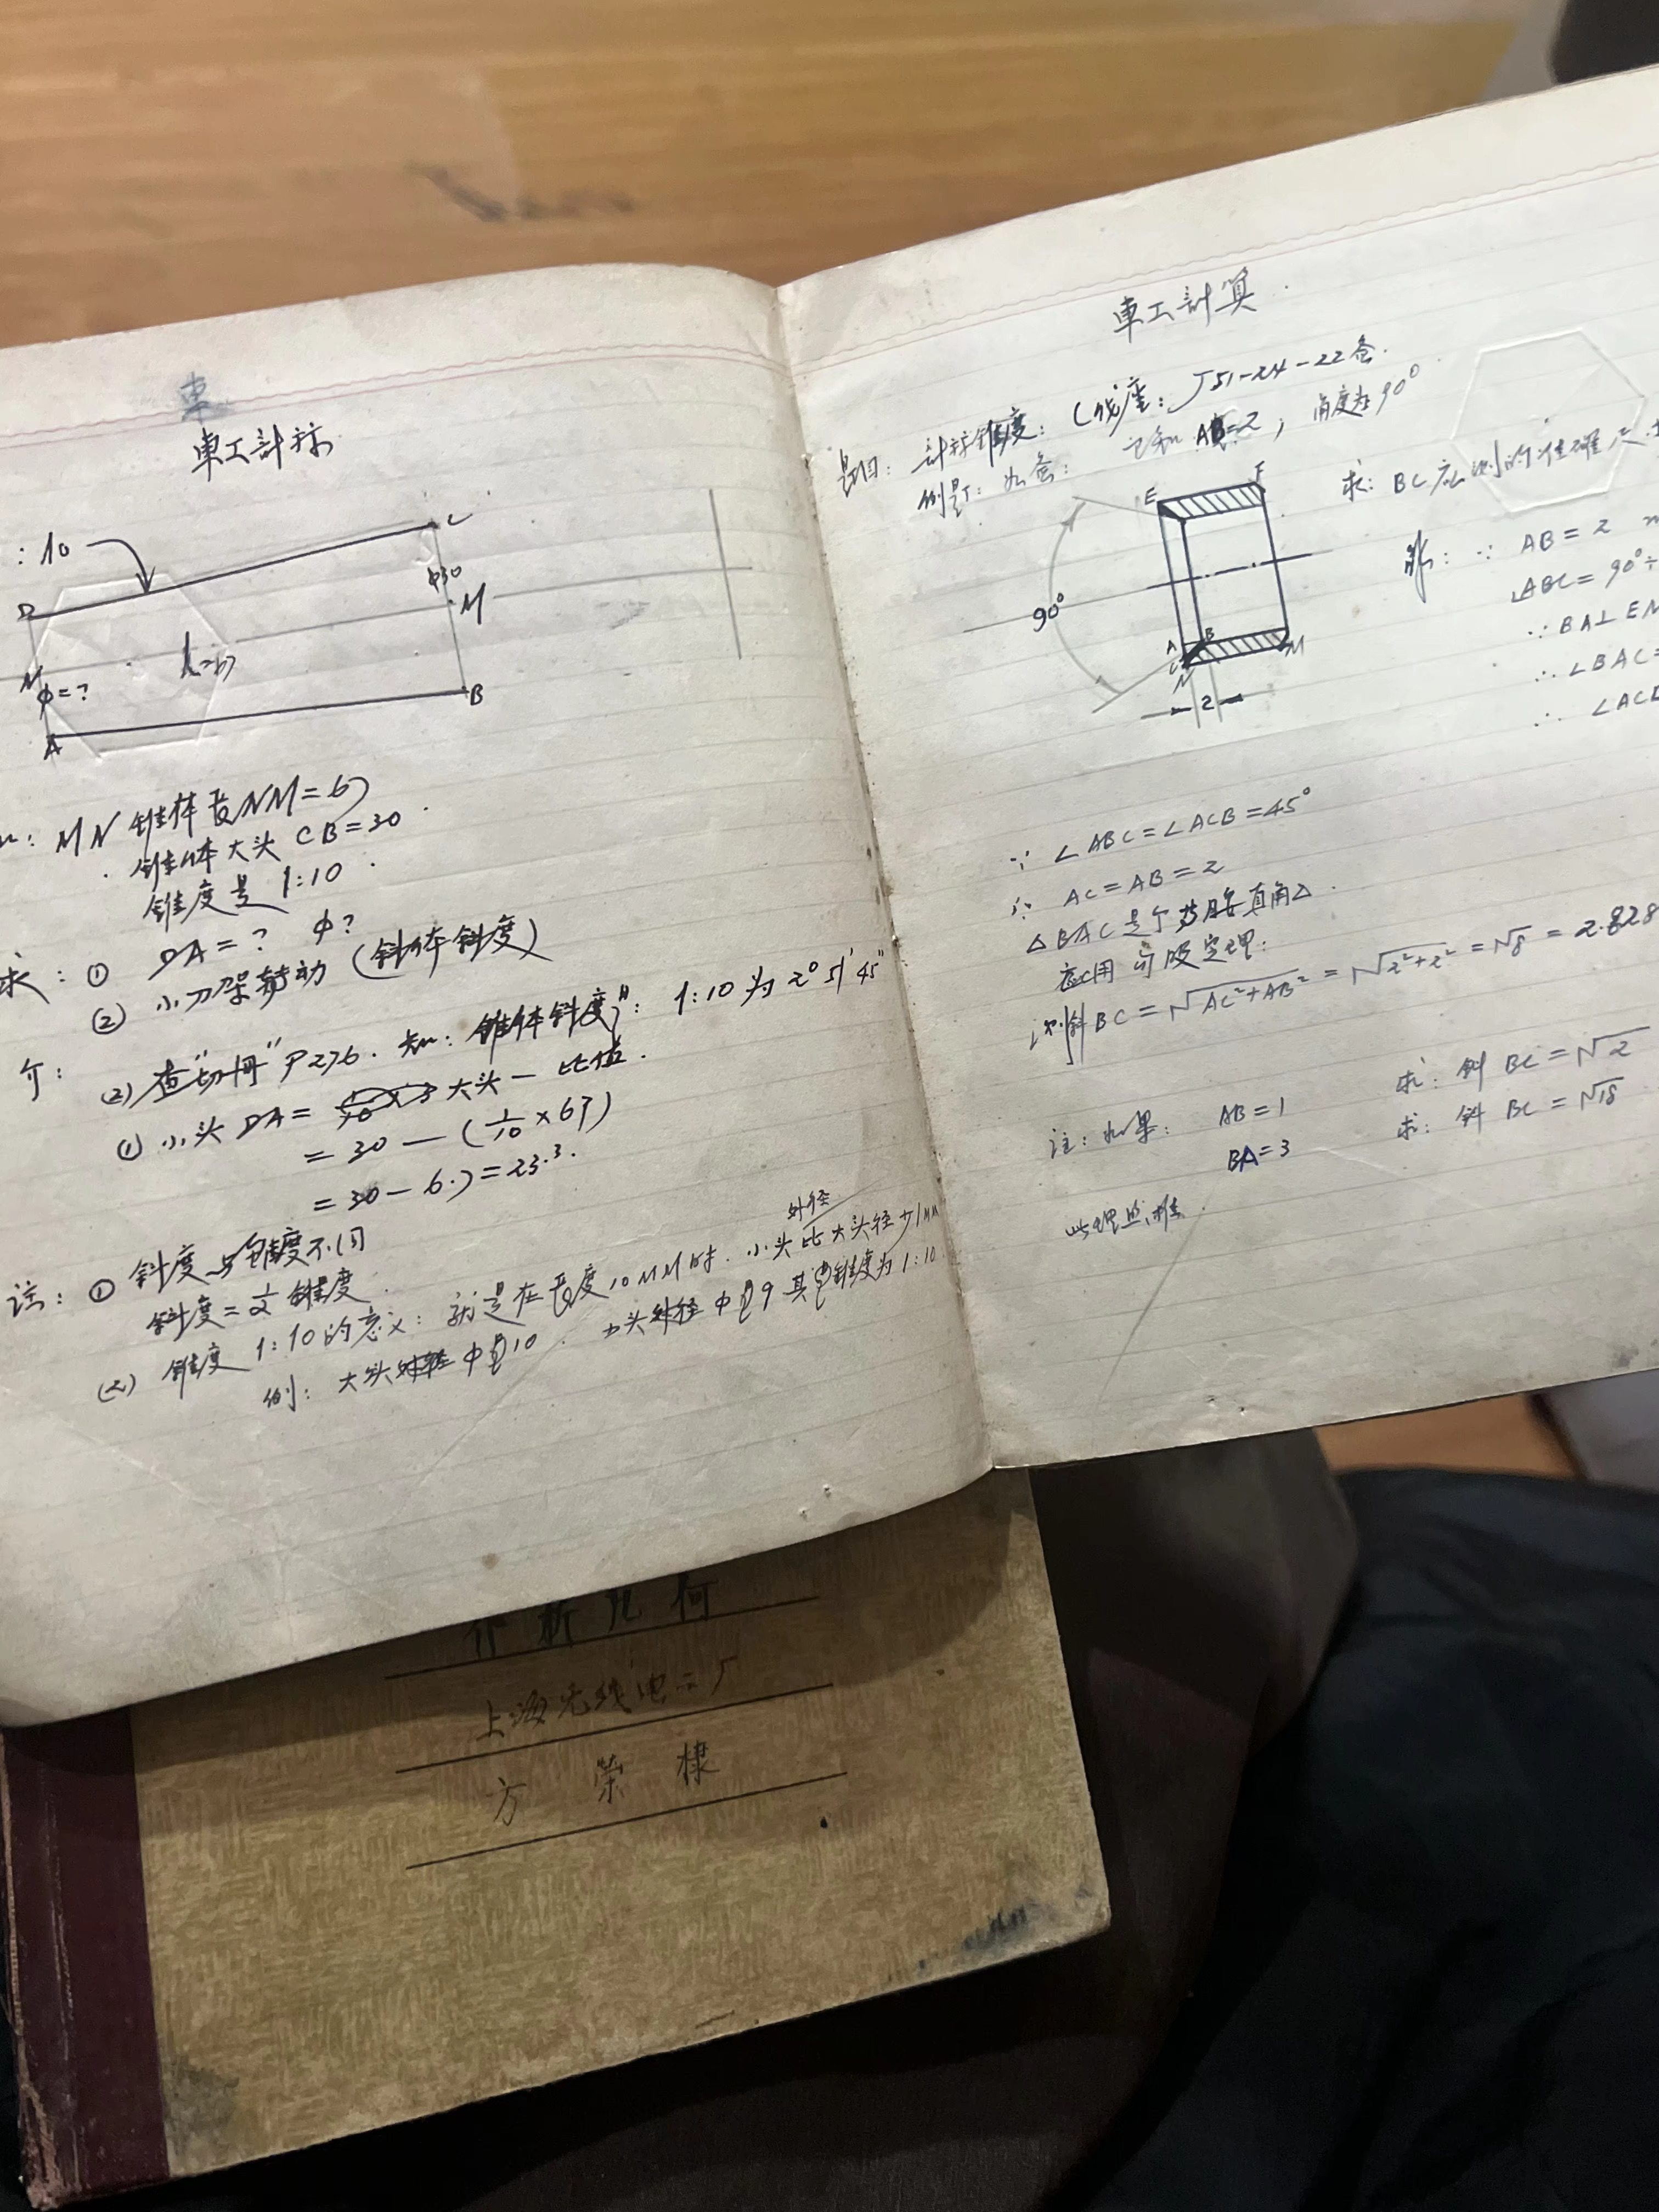 車
車工計算
:10
D
C
φ30
M
l=67
N
φ=?
A
B
MN 锥体長NM=67
锥体大头 CB=30
锥度是 1:10
求:① DA=? φ?
② 小刀架轉动(斜体斜度)
(2) 查"切册"P276. 知:锥体斜度":1:10为2°51′45″
① 小头 DA= 大头一比值.
=30-(1/10×67)
=30-6.7=23.3.
註:① 斜度与锥度不同
斜度=1/2锥度
外径
(2) 锥度 1:10的意义:就是在長度10MM时.小头比大头径少1MM
例:大头外径φ10. 小头外径φ9其锥度为1:10
車工計算
題目:計算锥度:(线座:J51-24-22
例題:如 已知AB=2,角度为90°
求:BC应 的准確尺
E
F
90°
A
B
C
N
M
2
解:∵ AB=2
∠ABC=90°÷
∵ BA⊥EN
∴ ∠BAC=
∴ ∠ACB
∵ ∠ABC=∠ACB=45°
∴ AC=AB=2
△BAC是个 直角△.
应用勾股定理:
则斜BC=√AC²+AB²=√2²+2²=√8=2.828
註:如果: AB=1 求:斜 BC=√2
BA=3 求:斜 BC=√18
此理照推.
介析几何
上海无线电二厂
方荣棣